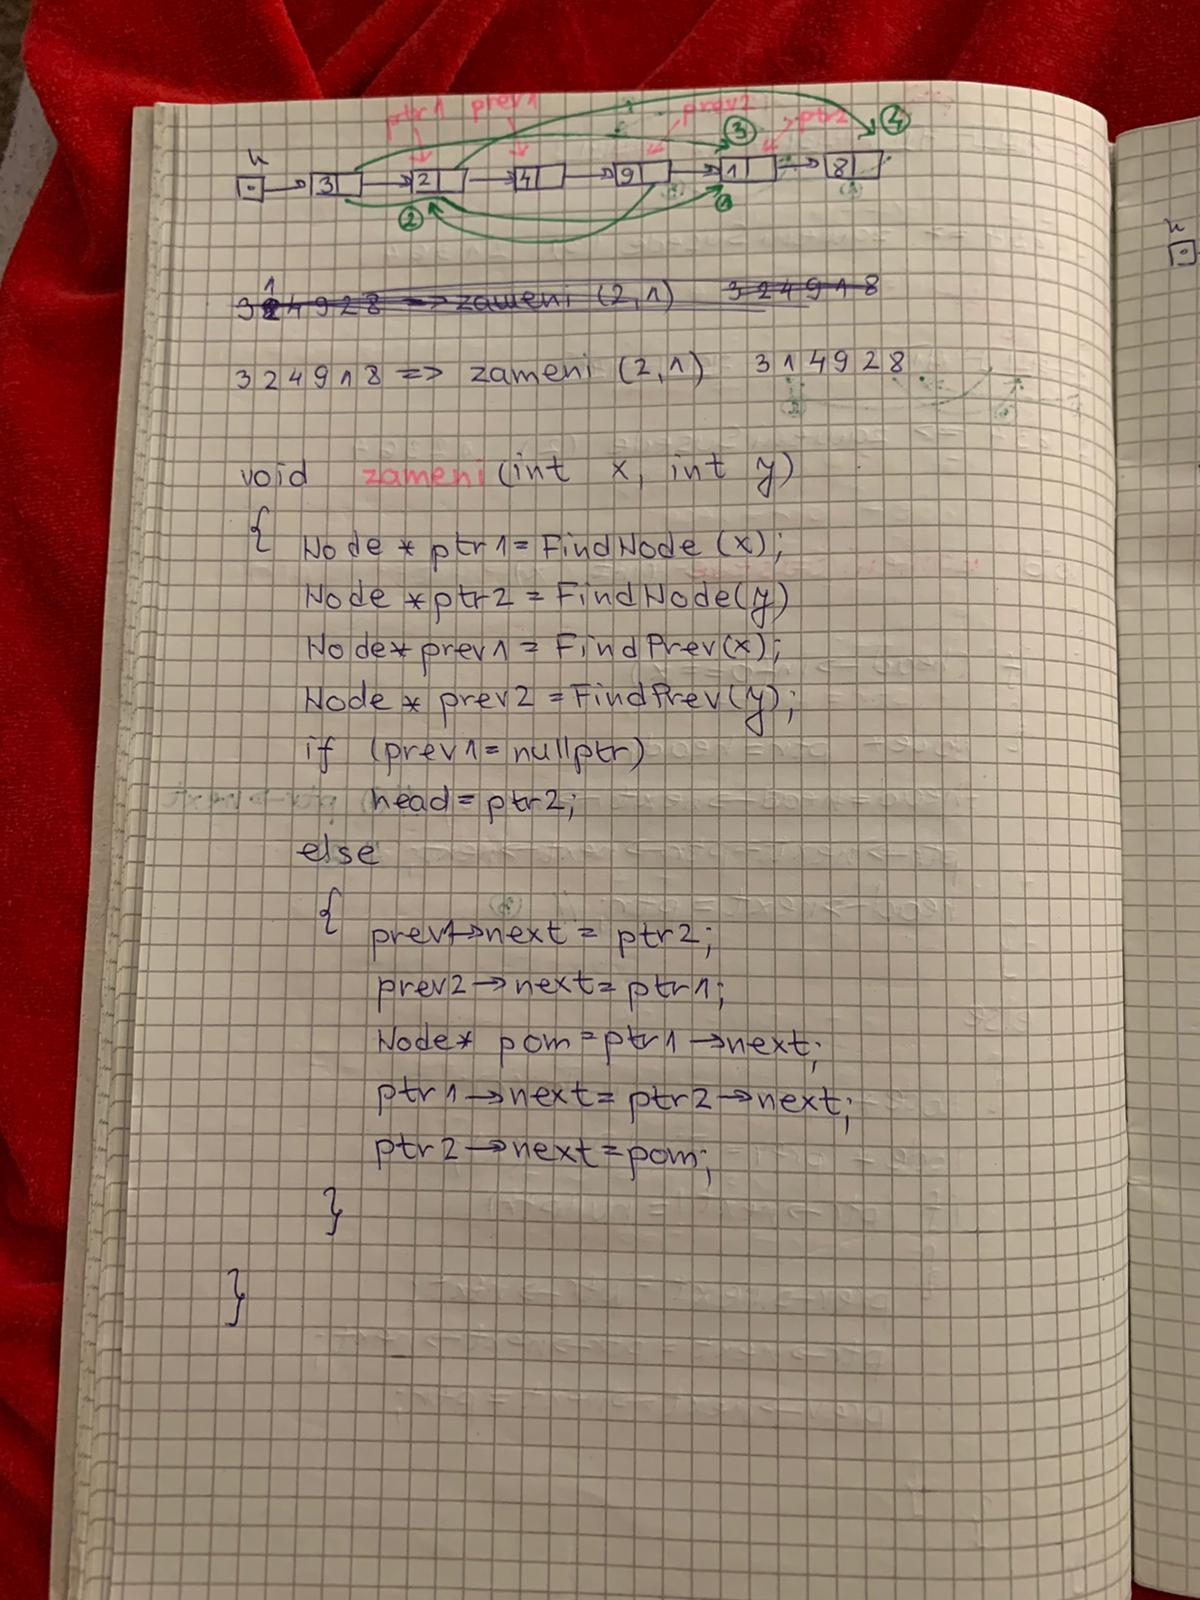 ptr1 prev1 prev2 ptr2
③ ④
h
3 2 4 9 1 8
② ①
3 1 4 9 2 8 => zameni (2,1) 3 2 4 9 1 8
3 2 4 9 1 8 => zameni (2,1) 3 1 4 9 2 8
void zameni (int x, int y)
{ Node * ptr1 = FindNode (x);
Node * ptr2 = FindNode(y)
Node* prev1 = FindPrev(x);
Node * prev2 = FindPrev(y);
if (prev1 = nullptr)
head = ptr2;
else
{ prev1->next = ptr2;
prev2->next = ptr1;
Node* pom = ptr1->next;
ptr1->next = ptr2->next;
ptr2->next = pom;
}
}
h